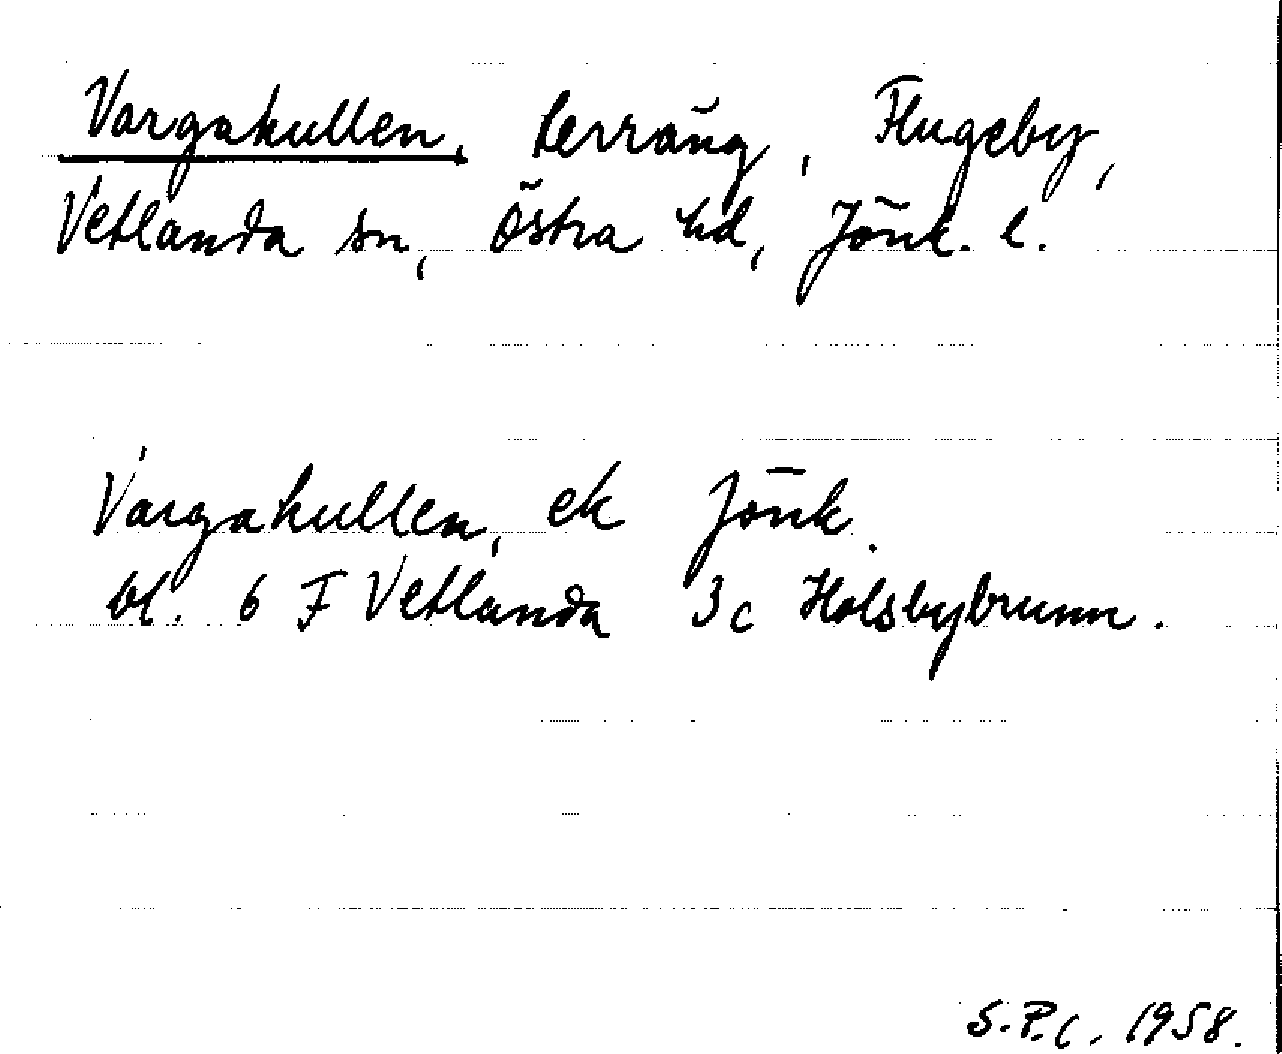 Vargakullen, terräng, Flugeby,
Vetlanda sn, Östra hd, Jönk. l.
Vargakullen, ek Jönk.
bl. 6 F Vetlanda 3c Holsbybrunn.
S.P.C. 1958.